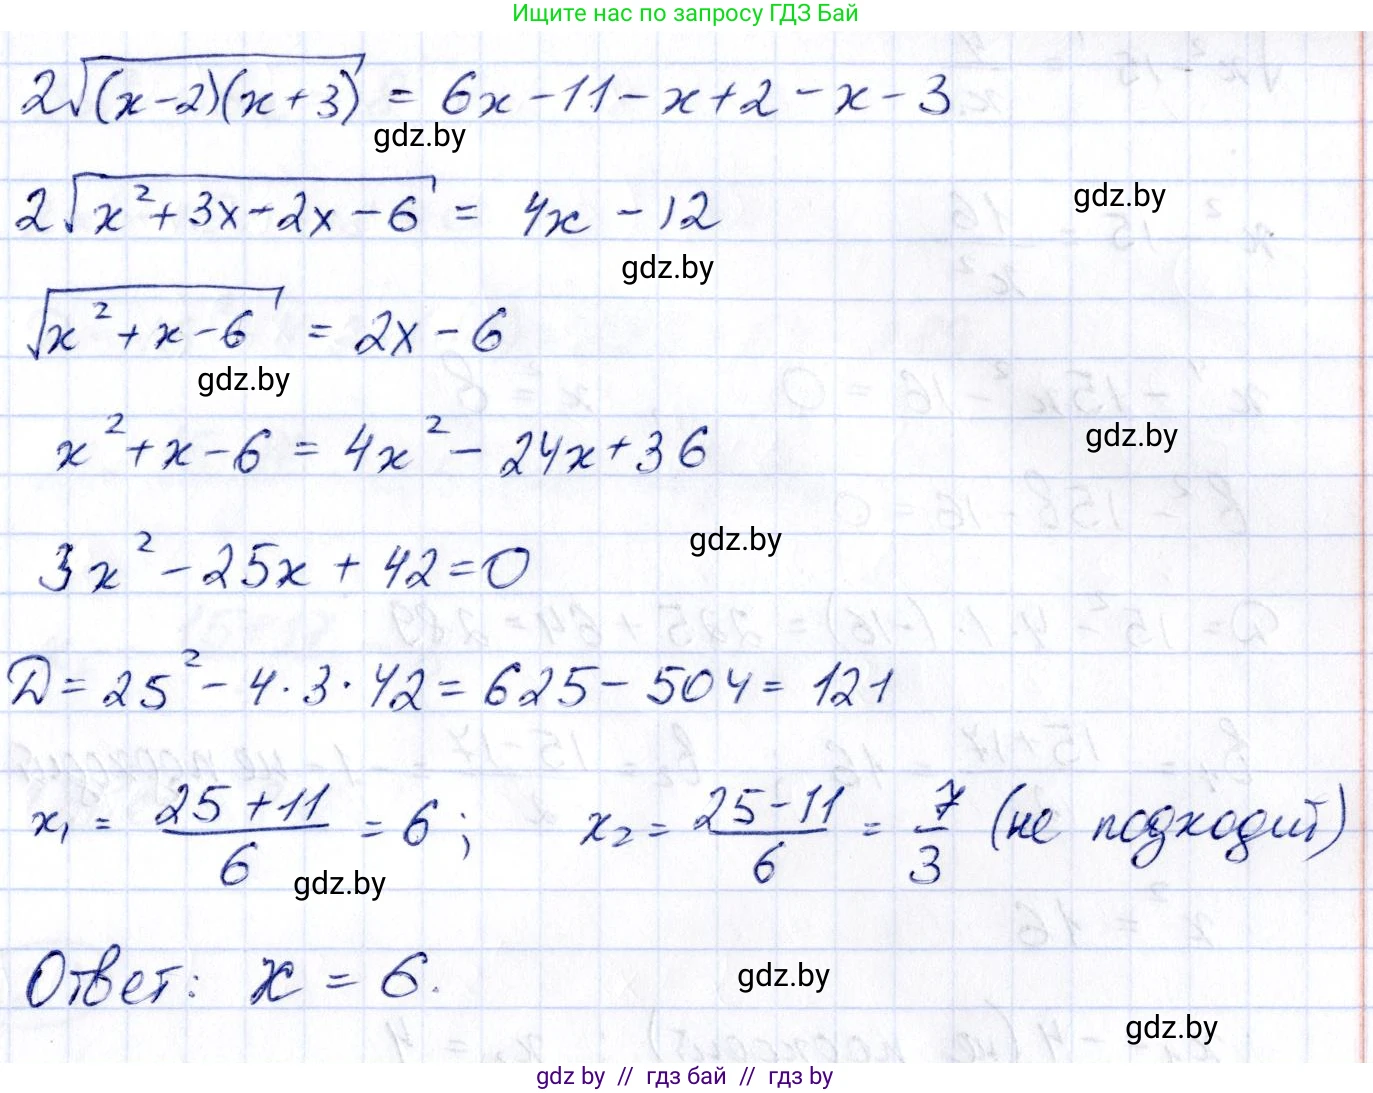 Ищите нас по запросу ГДЗ Бай
2√(x-2)(x+3) = 6x-11-x+2-x-3
gdz.by
gdz.by
2√x²+3x-2x-6 = 4x-12
gdz.by
√x²+x-6 = 2x-6
gdz.by
x²+x-6 = 4x²-24x+36
gdz.by
gdz.by
3x²-25x+42=0
D=25²-4·3·42=625-504=121
x₁ = 25+11/6 = 6; x₂ = 25-11/6 = 7/3 (не подходит)
gdz.by
Ответ: x = 6.
gdz.by
gdz.by
gdz by // гдз бай // гдз by